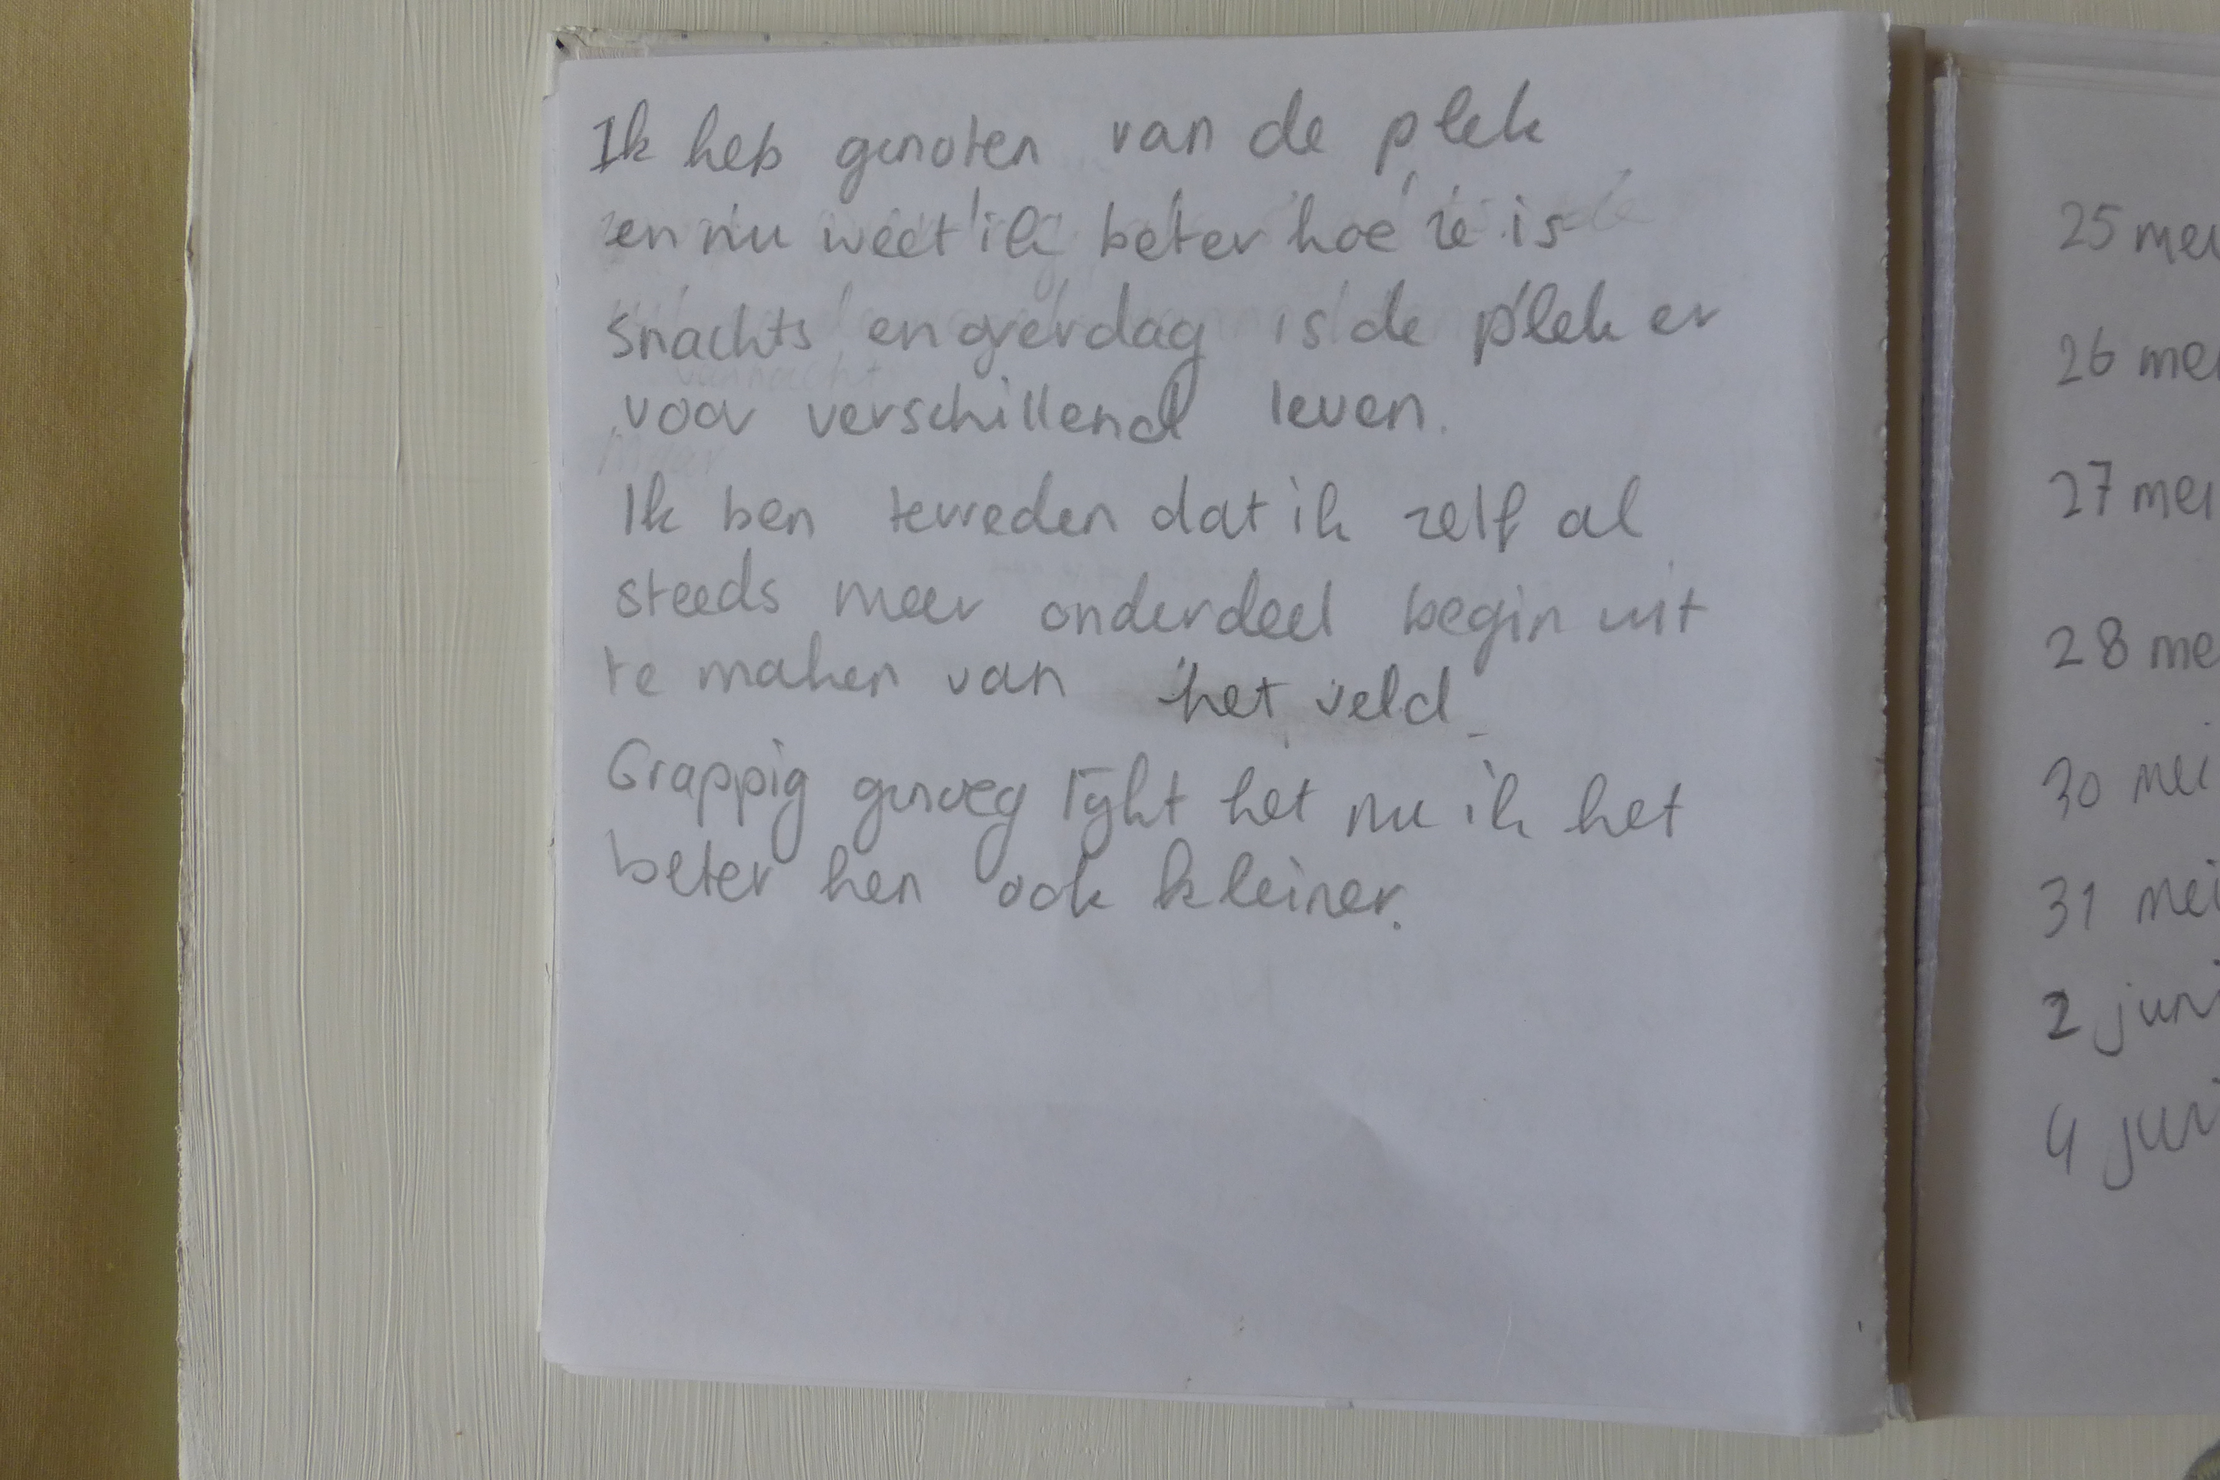 Ik heb genoten van de plek
en nu weet ik beter hoe ze is
snachts en overdag is de plek er
voor verschillend leven.
Ik ben tevreden dat ik zelf al
steeds meer onderdeel begin uit
te maken van het veld
Grappig genoeg lijkt het nu ik het
beter ken ook kleiner.
25 mei
26 mei
27 mei
28 me
30 mei
31 mei
2 juni
4 juni